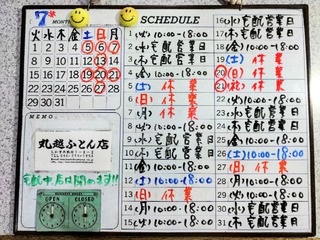 7 MONTH
火 水 木 金 土 日 月
1 2 3 4 5 6 7
8 9 10 11 12 13 14
15 16 17 18 19 20 21
22 23 24 25 26 27 28
29 30 31
MEMO
丸越ふとん店
OPEN CLOSED
SCHEDULE
1 (火) 10:00-18:00
2 (水) 宅配営業日
3 (木) 宅配営業日
4 (金) 10:00-18:00
5 (土) 休業
6 (日) 休業
7 (月) 休業
8 (火) 10:00-18:00
9 (水) 宅配営業日
10 (木) 宅配営業日
11 (金) 10:00-18:00
12 (土) 10:00-18:00
13 (日) 休業
14 (月) 10:00-18:00
15 (火) 10:00-18:00
16 (水) 宅配営業日
17 (木) 宅配営業日
18 (金) 10:00-18:00
19 (土) 休業
20 (日) 休業
21 (月) 休業
22 (火) 10:00-18:00
23 (水) 宅配営業日
24 (木) 宅配営業日
25 (金) 10:00-18:00
26 (土) 10:00-18:00
27 (日) 休業
28 (月) 10:00-18:00
29 (火) 10:00-18:00
30 (水) 宅配営業日
31 (木) 宅配営業日